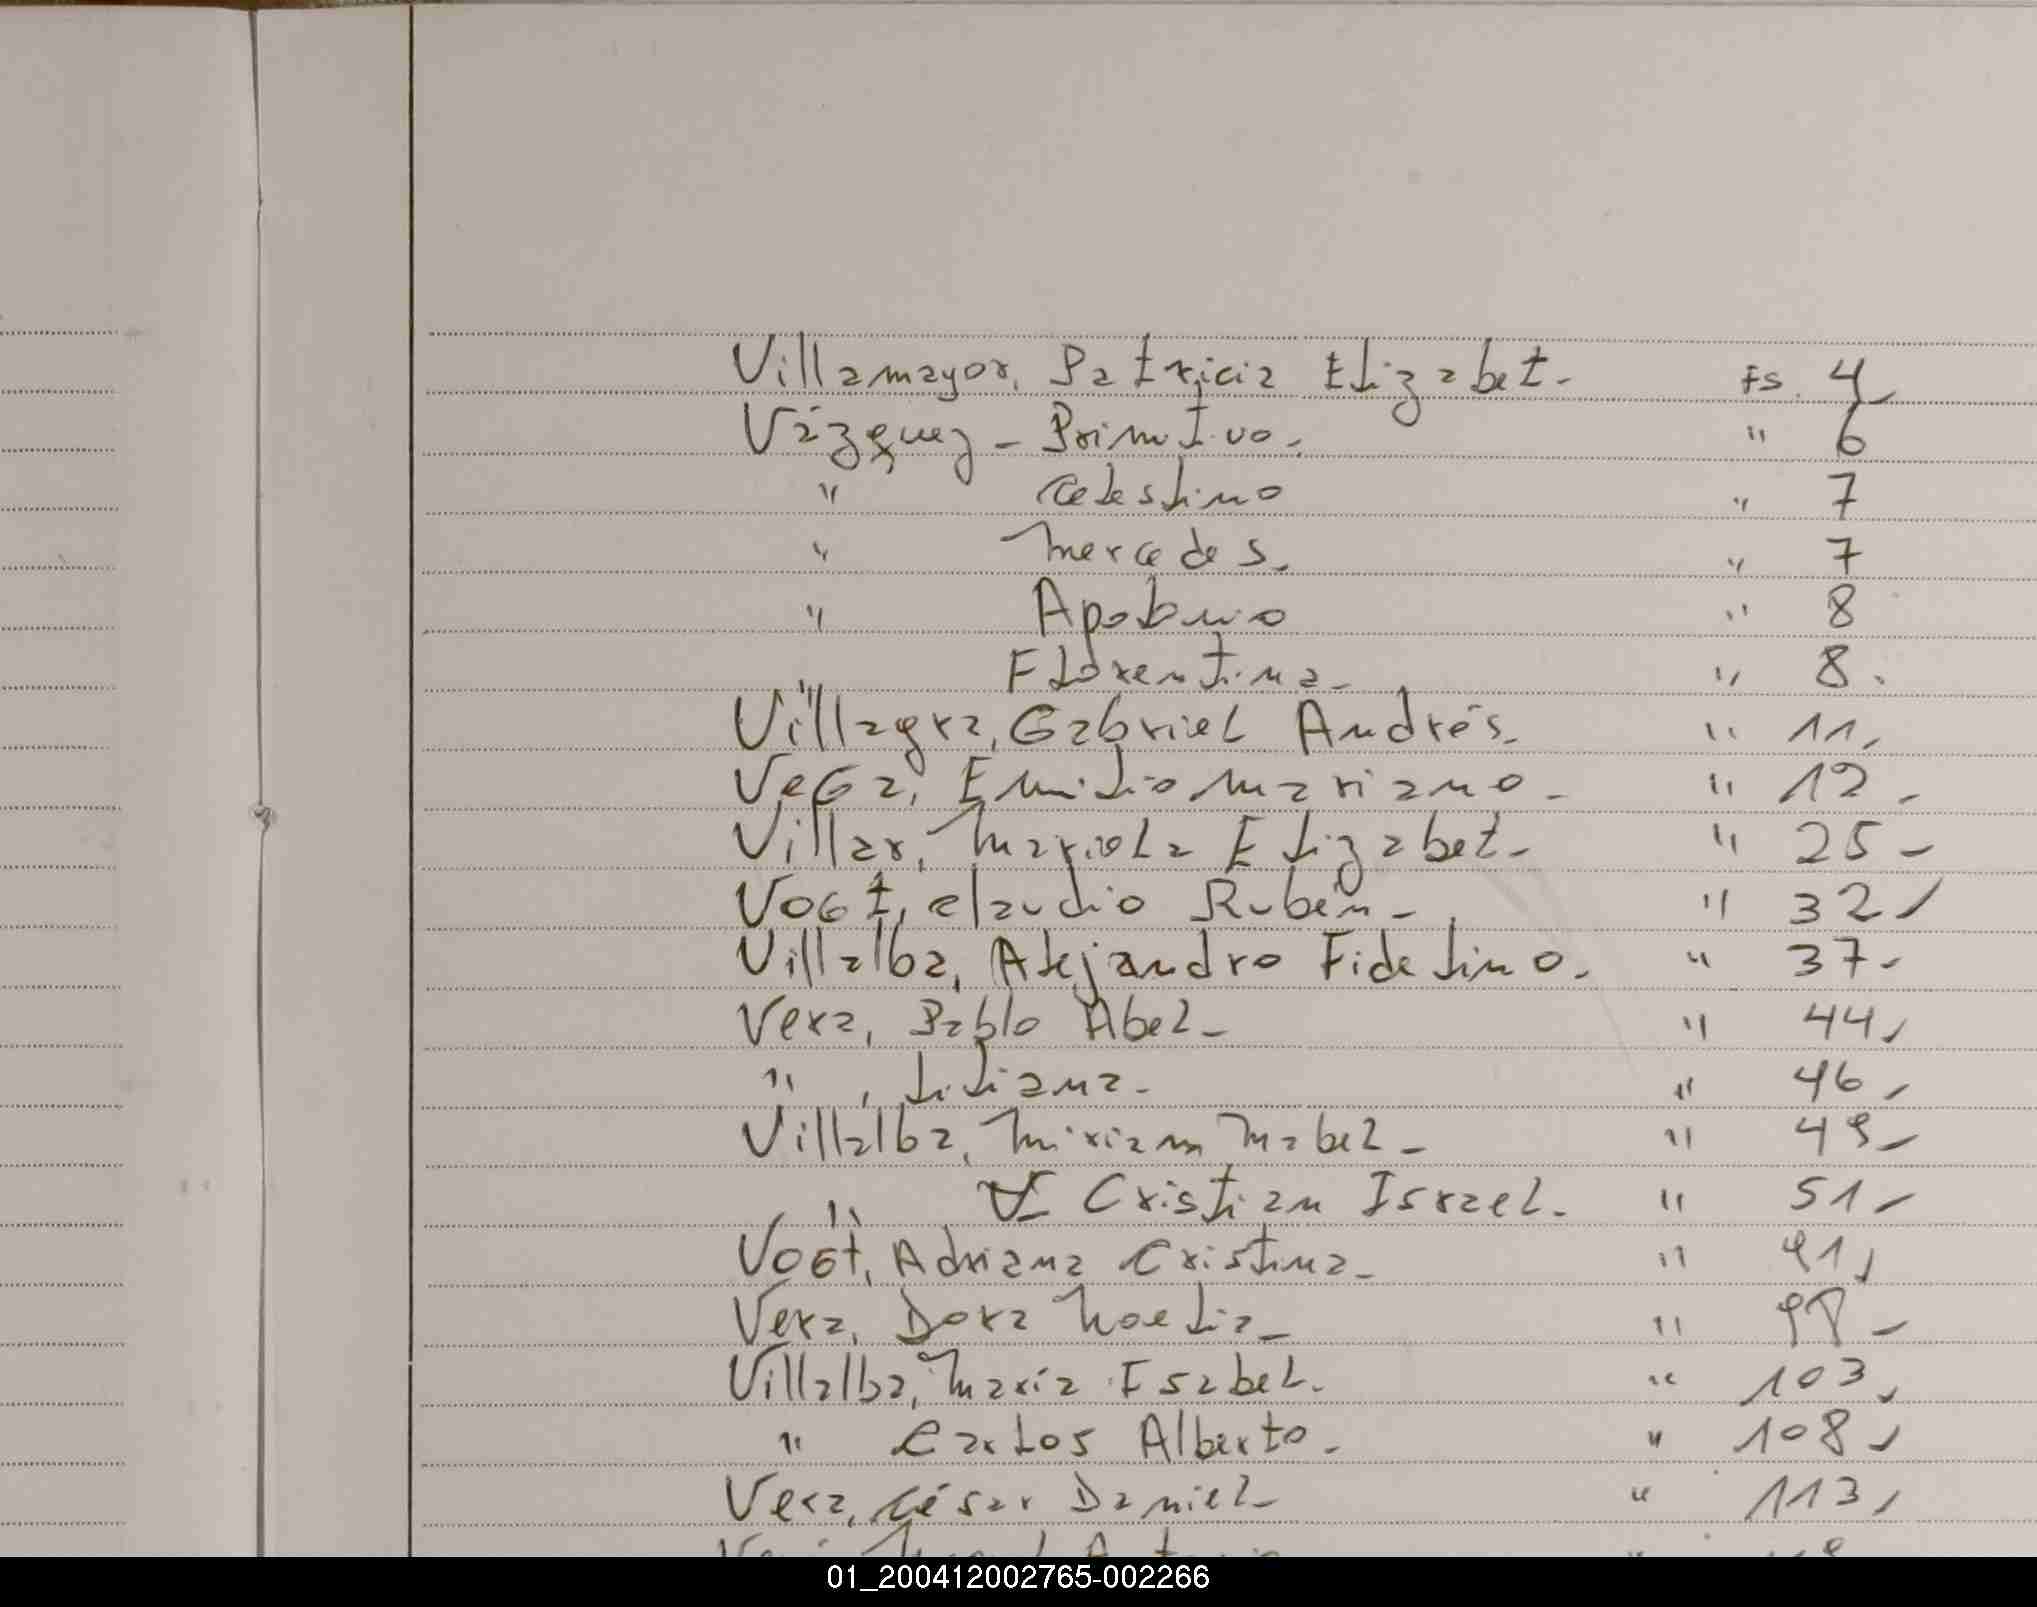 Villamayor, Patricia Elizabet. Fs. 4
Vázquez - Primitivo. " 6
" Celestino " 7
" Mercedes. " 7
" Apolinio " 8
" Florentina. " 8.
Villagra, Gabriel Andrés. " 11,
VeGa, Emilio Mariano. " 12.
Villar, Mariela Elizabet. " 25-
VoGt, Claudio Rubén- " 32,
Villalba, Alejandro Fidelino. " 37-
Vera, Pablo Abel- " 44,
" , Liliana. " 46,
Villalba, Miriam Mabel- " 49-
" Cristian Israel. " 51-
VoGt, Adriana Cristina- " 91,
Vera, Dora Noelia- " 98-
Villalba, María Isabel. " 103,
" Carlos Alberto. " 108,
Vera, César Daniel- " 113,
01_200412002765-002266